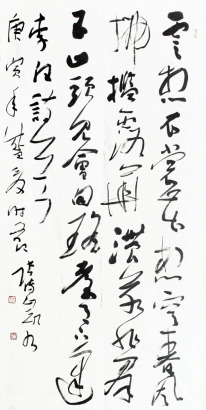 雲想衣裳花想容春風
拂檻露華濃若非群
玉山頭見會向瑤臺月下逢
李白詩一首
庚寅年盛夏時節